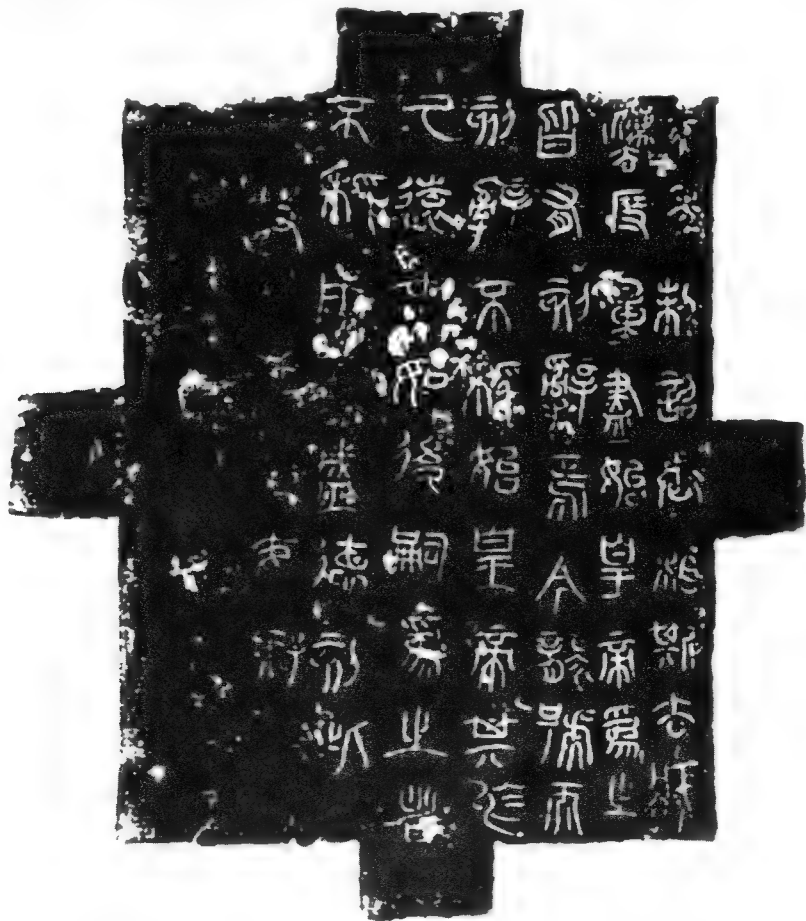 元年制詔丞相斯去疾
灋度量盡始皇帝為之
皆有刻辭焉今襲號而
刻辭不稱始皇帝其於
久遠也如後嗣為之者
不稱成盛德刻此